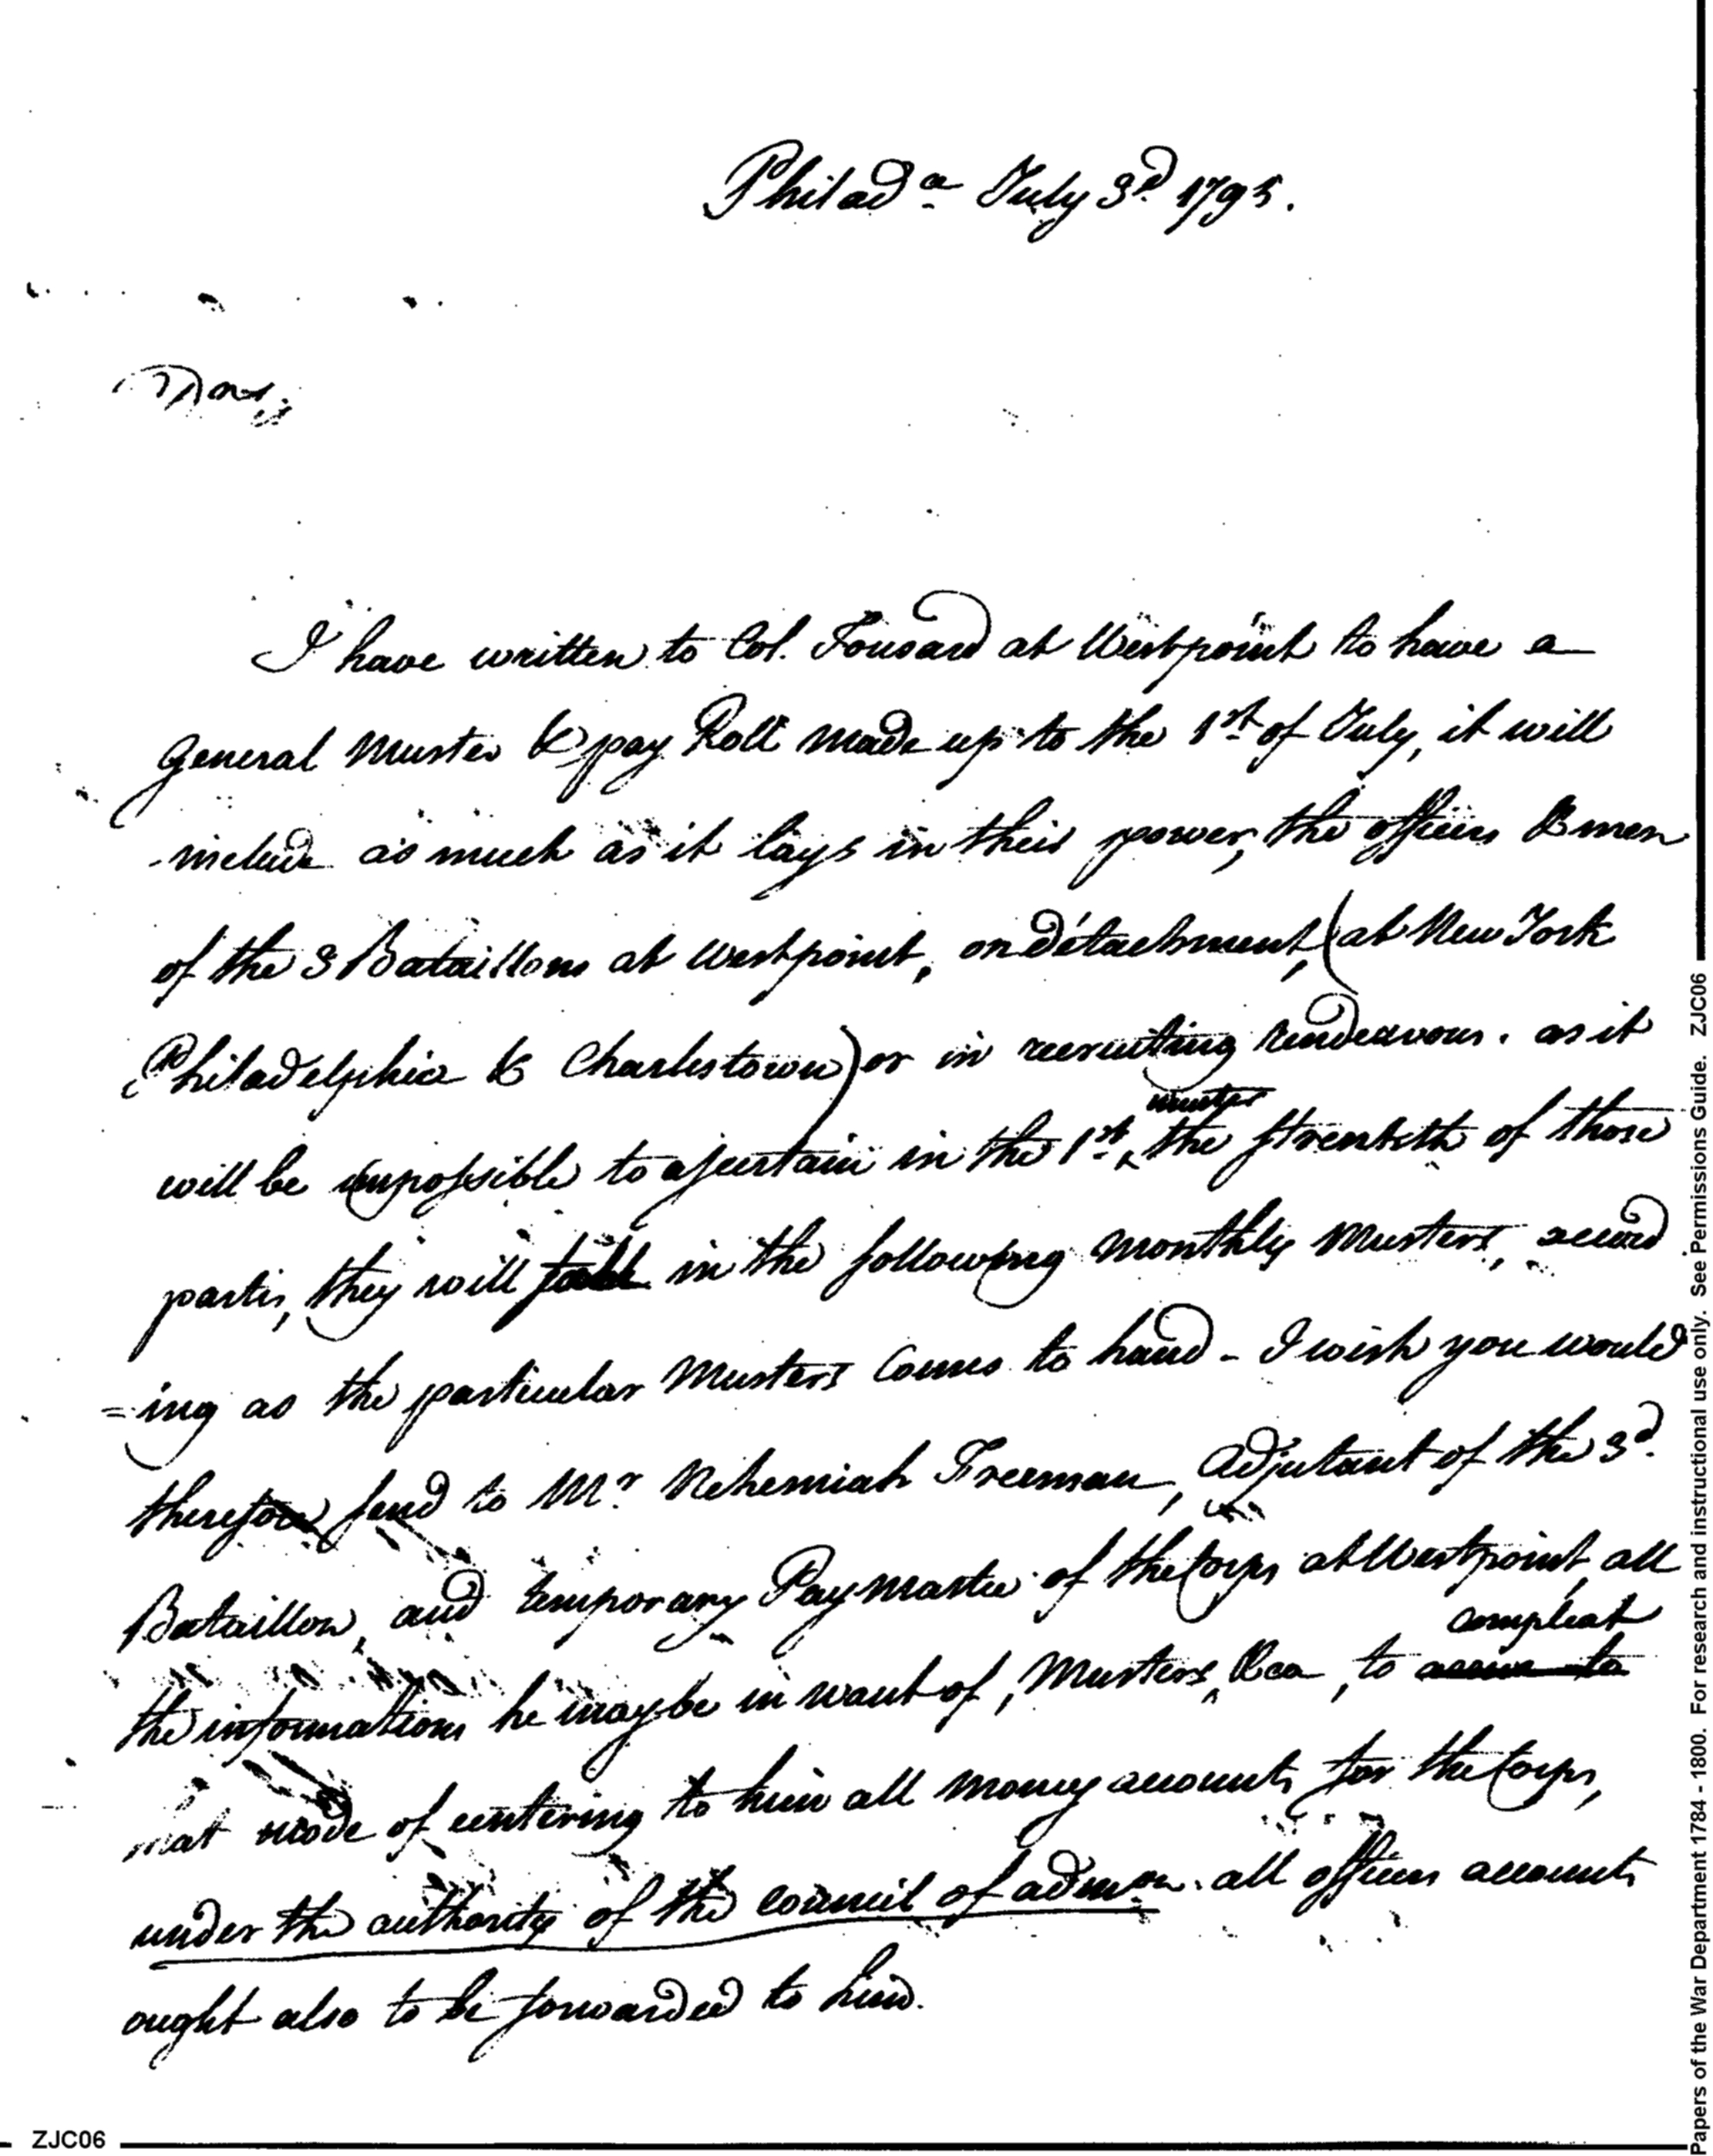 Philada July 3d 1795.
I have written to Col. Tousard at Westpoint to have a
general Muster & pay Roll made up to the 1st of July, it will
include as much as it lays in their power, the officers & men
of the 3 Bataillons at Westpoint, on détachment, (at New York
Philadelphia & Charlestown) or in recruiting rendeavous. as it
muster
will be impossible to ascertain in the 1st, the strenkth of those
partis, they will fall in the following monthly Musters, accord
=ing as the particular Musters comes to hand - I wish you would
therefore send to Mr Nehemiah Freeman, adjutant of the 3d.
Bataillon, and temporary Paymaster of the Corps at Westpoint, all
compleat
the informations he may be in want of, Musters, &ca, to
that mode of centering to him all money accounts for the Corps,
under the authority of the council of admon. all officers accounts
ought also to be forwarded to him.
ZJC06
Papers of the War Department 1784 - 1800. For research and instructional use only. See Permissions Guide. ZJC06